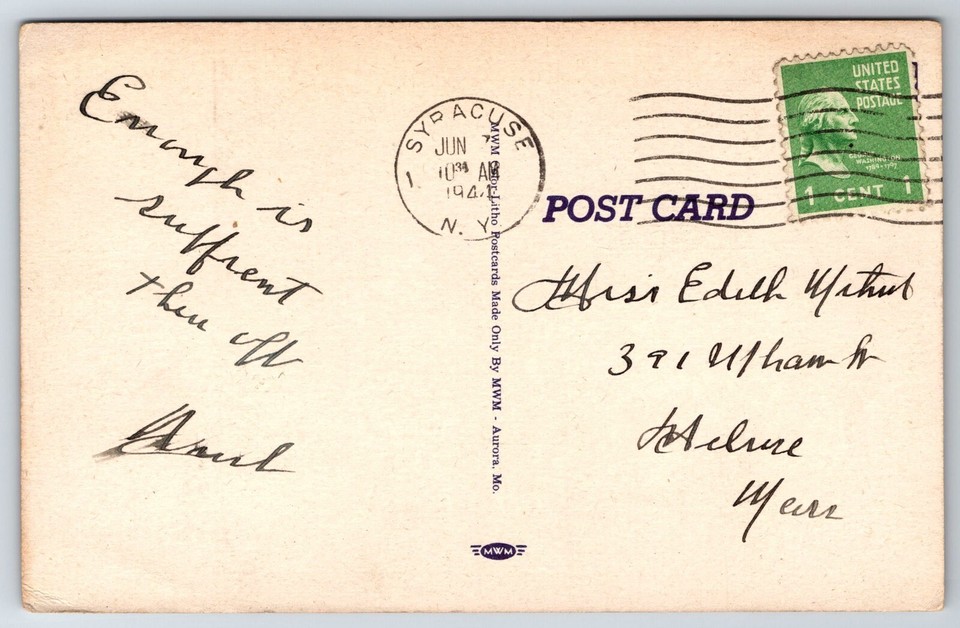 Enough is
suffient
then
SYRACUSE
JUN 7
AM
1941
N. Y.
UNITED
STATES
POSTAGE
GEORGE
WASHINGTON
1789-1797
1 CENT 1
POST CARD
MWM Color-Litho Postcards Made Only By MWM - Aurora, Mo.
Miss Edith
391 Upham St
Melrose
Mass
MWM